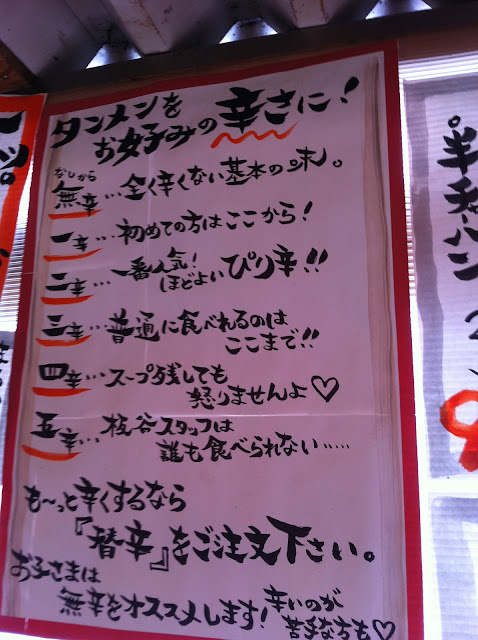 タンメンを
お好みの辛さに！
なしから
無辛…全く辛くない基本の味。
一辛…初めての方はここから！
二辛…一番人気！
ほどよいぴり辛!!
三辛…普通に食べれるのは
ここまで!!
四辛…スープ残しても
怒りませんよ♡
五辛…板谷スタッフは
誰も食べられない……
も〜っと辛くするなら
『替辛』をご注文下さい。
お子さまは
無辛をオススメします！
辛いのが
苦手な方も♡
半チャーハン